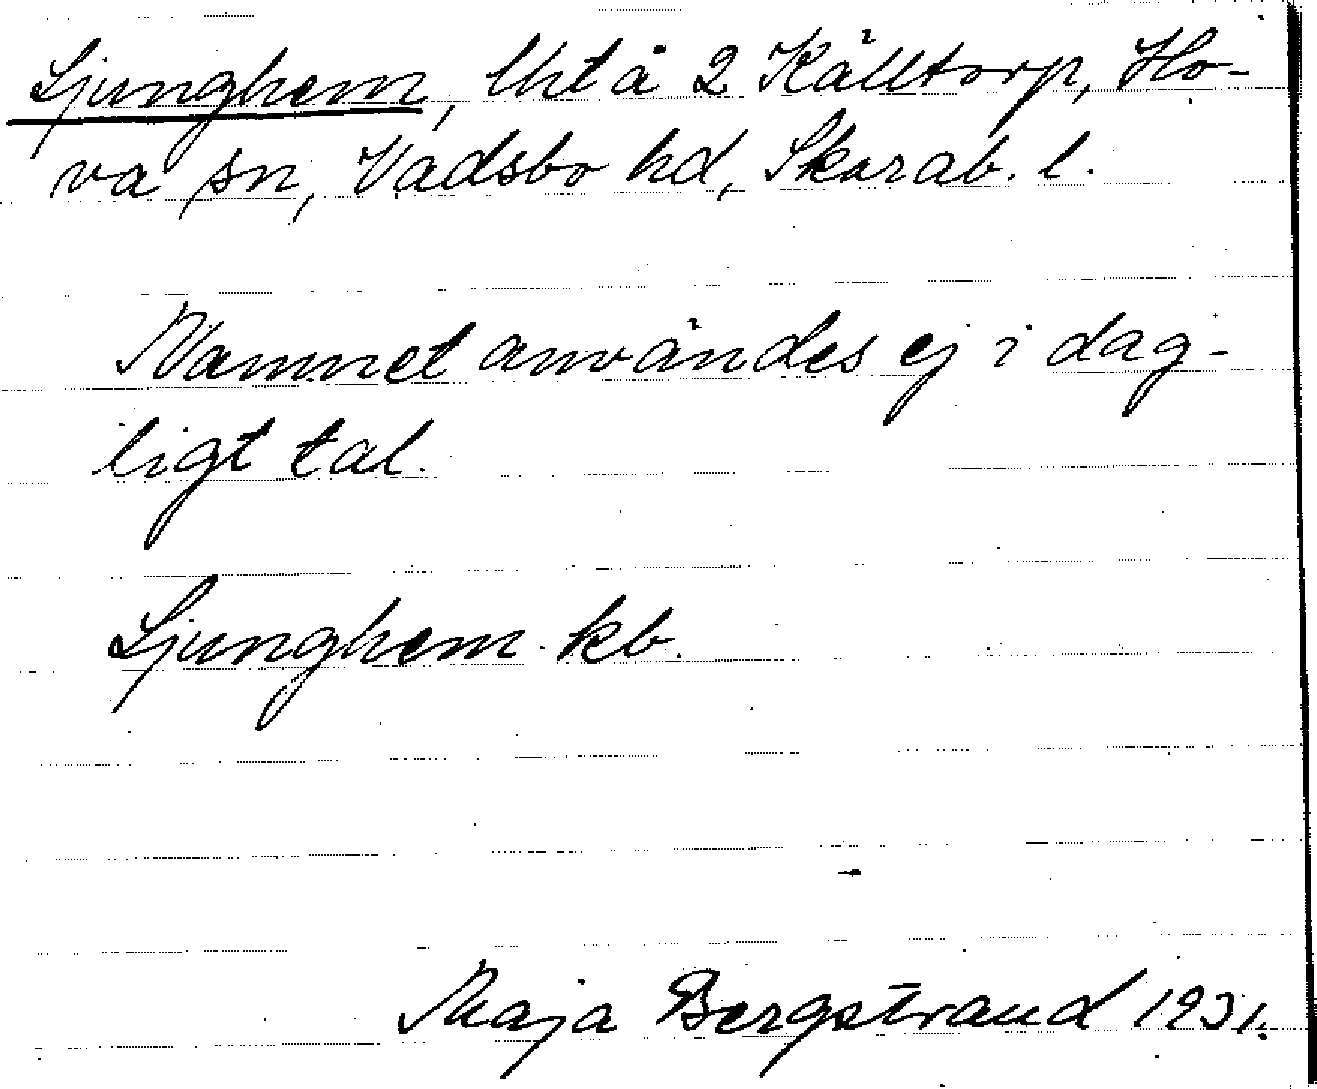 Ljunghem, lht å 2 Källtorp, Ho-
va sn, Vadsbo hd, Skarab. l.
Namnet användes ej i dag-
ligt tal.
Ljunghem kb.
Maja Bergstrand 1931.